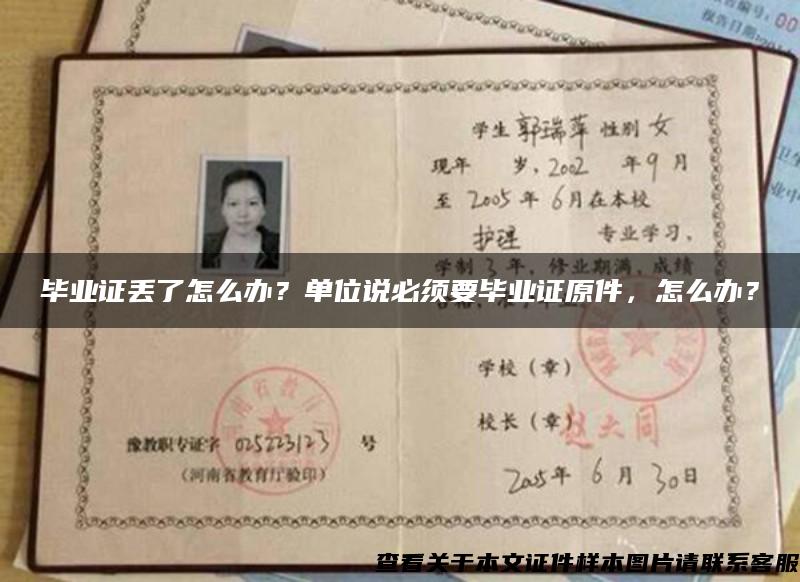 告编号：00
报告日期：201
学生 郭瑞萍 性别 女
现年 岁，2002 年 9 月
至 2005 年 6 月在本校
护理 专业学习，
学制 3 年，修业期满，成绩
毕业证丢了怎么办？单位说必须要毕业证原件，怎么办？
学校（章）
校长（章） 赵大同
豫教职专证字 025223123 号
（河南省教育厅验印）
2005 年 6 月 30 日
查看关于本文证件样本图片请联系客服